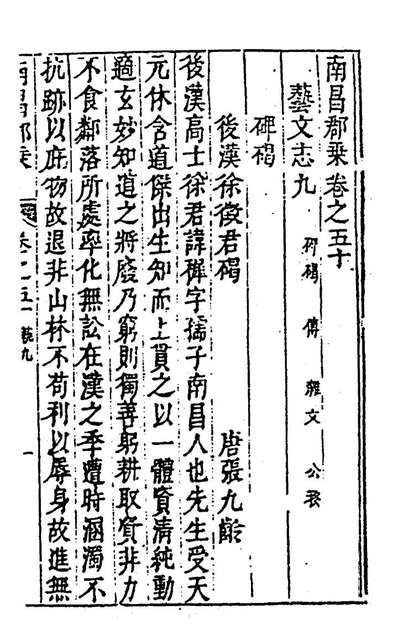 南昌郡乘卷之五十
藝文志九 碑碣 傳 雜文 公移
碑碣
後漢徐徵君碣 唐張九齡
後漢高士徐君諱穉字孺子南昌人也先生受天
元休含道傑出生知而上貫之以一體資清純動
適玄妙知道之將廢乃窮則獨善躬耕取資非力
不食鄰落所處率化無訟在漢之季遭時溷濁不
抗跡以庇物故退非山林不苟利以辱身故進無
南昌郡乘 卷之五十 藝九 一